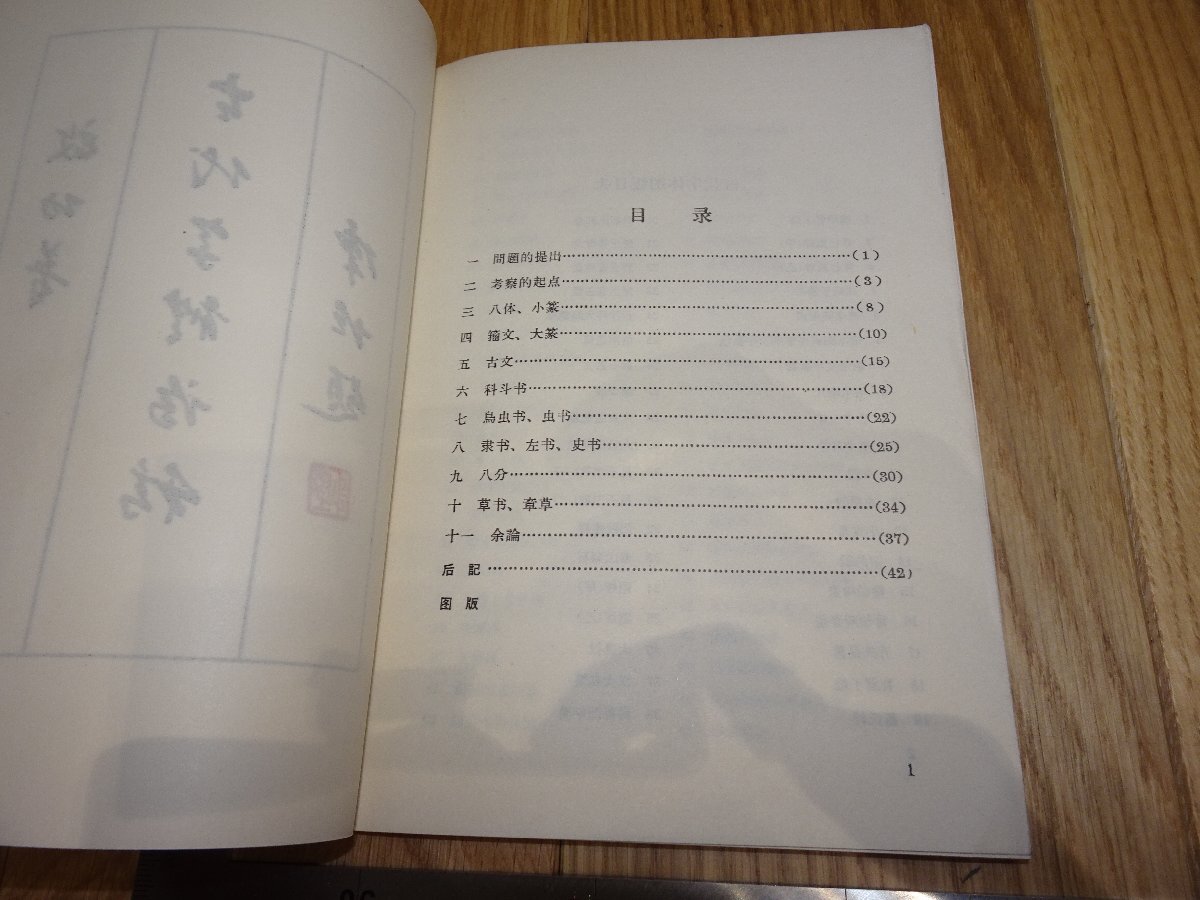 目 录
一 問題的提出……(1)
二 考察的起点……(3)
三 八体、小篆……(8)
四 籀文、大篆……(10)
五 古文……(15)
六 科斗书……(18)
七 鳥虫书、虫书……(22)
八 隶书、左书、史书……(25)
九 八分……(30)
十 草书、章草……(34)
十一 余論……(37)
后 記……(42)
图 版
1
古代字體論稿
启功著